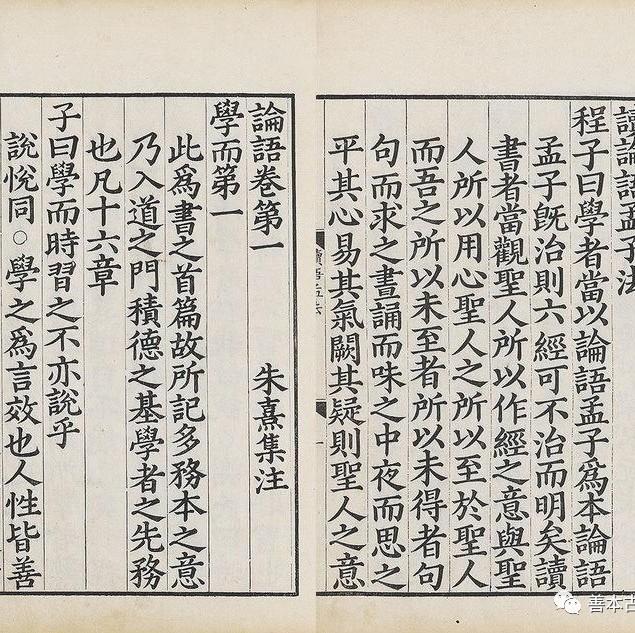 讀論語孟子法
程子曰學者當以論語孟子爲本論語
孟子旣治則六經可不治而明矣讀
書者當觀聖人所以作經之意與聖
人所以用心聖人之所以至於聖人
而吾之所以未至者所以未得者句
句而求之晝誦而味之中夜而思之
平其心易其氣闕其疑則聖人之意
論語卷第一
朱熹集注
學而第一
此爲書之首篇故所記多務本之意
乃入道之門積德之基學者之先務
也凡十六章
子曰學而時習之不亦說乎
說悅同○學之爲言效也人性皆善
善本古